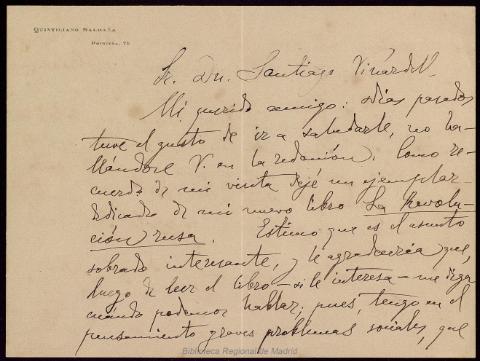 QUINTILIANO SALDAÑA
Sr. Dn. Santiago Vinardell.
Mi querido amigo: días pasados
tuve el gusto de ir a saludarte, no ha-
llándose V. en la redacción. Como re-
cuerdo de mi visita dejé un ejemplar
dedicado de mi nuevo libro La Revolu-
ción rusa. Estimo que es el asunto
sobrado interesante, y le agradecería que,
luego de leer el libro – si le interesa – me diga
cuándo podemos hablar; pues, tengo en el
pensamiento graves problemas sociales, que
Biblioteca Regional de Madrid